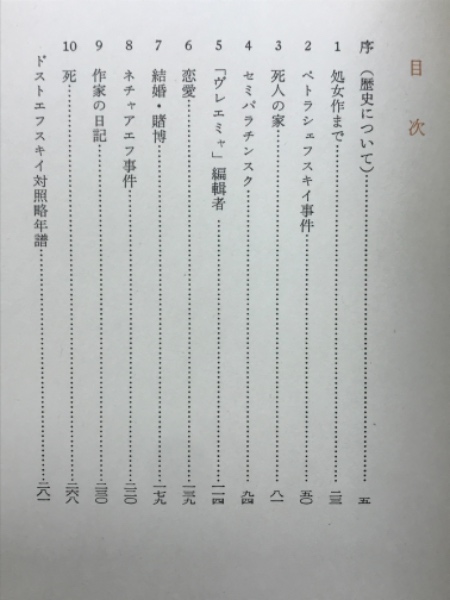 目次
序（歴史について）……五
1 処女作まで……二三
2 ペトラシェフスキイ事件……五〇
3 死人の家……八一
4 セミパラチンスク……九四
5 「ヴレエミャ」編輯者……一一四
6 恋愛……一三九
7 結婚・賭博……一七九
8 ネチャアエフ事件……二二〇
9 作家の日記……二三〇
10 死……二六八
ドストエフスキイ対照略年譜……二八一